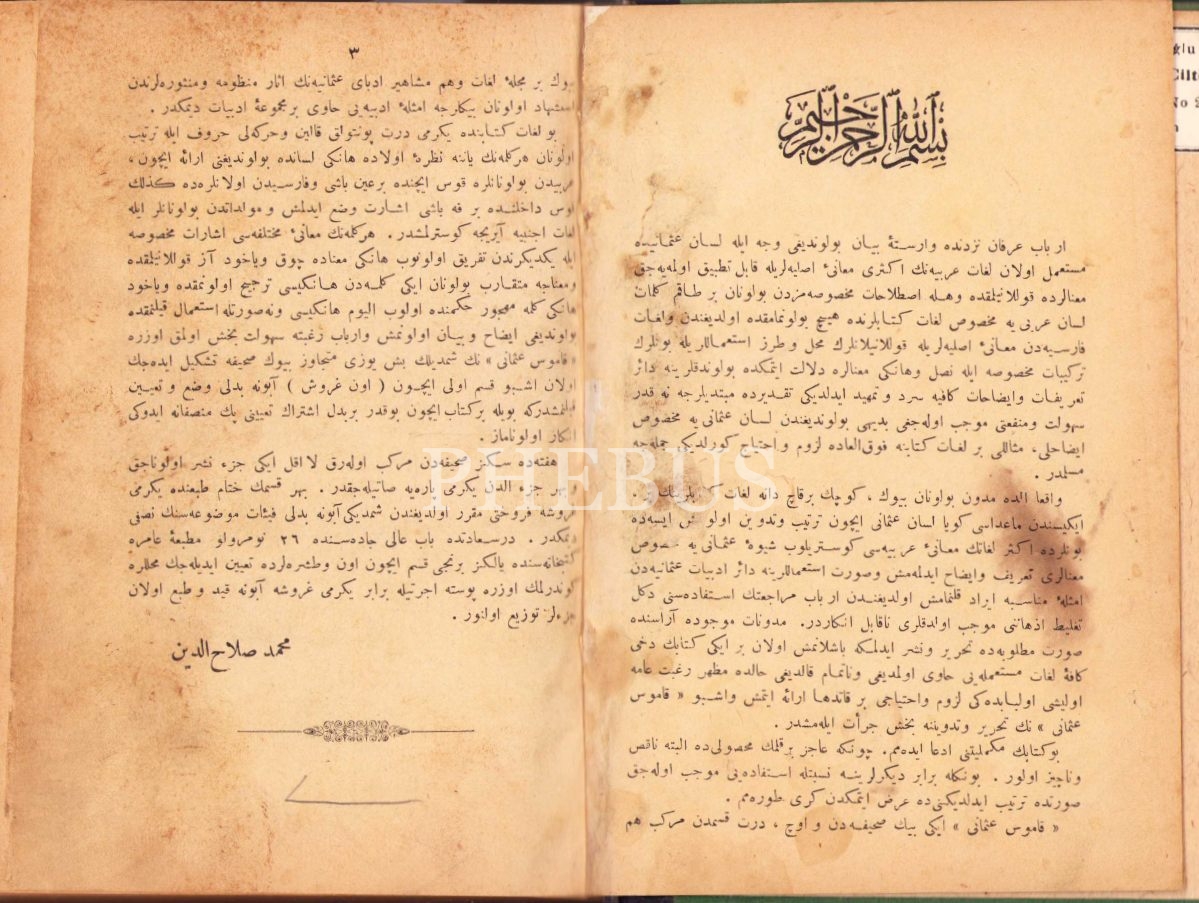 بسم الله الرحمن الرحيم
ار باب عرفان نزدنده وارستهٔ بیان بولوندیغی وجه ایله لسان عثمانیده
مستعمل اولان لغات عربیه‌نك اکثری معانیٔ اصلیه‌لریله قابل تطبیق اولمه‌یه‌جق
معنالرده قوللانیلمقده وهله اصطلاحات مخصوصه‌مزدن بولونان بر طاقم کلمات
لسان عربی یه مخصوص لغات کتابلرنده هیچ بولونمامقده اولدیغندن ولغات
فارسیه‌دن معانیٔ اصلیه‌لریله قوللانیلانلرك محل و طرز استعماللریله بونلرك
ترکیبات مخصوصه ایله نصل وهانکی معنالره دلالت ایتمکده بولوندقلرینه دائر
تعریفات وایضاحات کافیه سرد و تمهید ایدلدیکی تقدیرده مبتدیلرجه نه قدر
سهولت ومنفعتی موجب اوله‌جغی بدیهی بولوندیغندن لسان عثمانی یه مخصوص
ایضاحلی، مثاللی بر لغات کتابنه فوق‌العاده لزوم و احتیاج کورلدیکی جمله‌جه
مسلمدر .
واقعا الده مدون بولونان بیوك ، کوچك برقاچ دانه لغات
ایکیسندن ماعداسی کویا لسان عثمانی ایچون ترتیب وتدوین ایسه‌ده
بونلرده اکثر لغاتك معانیٔ عربیه‌سی کوستریلوب شیوهٔ عثمانی یه مخصوص
معنالری تعریف وایضاح ایدلمه‌مش وصورت استعماللرینه دائر ادبیات عثمانیه‌دن
امثلهٔ مناسبه ایراد قلنمامش اولدیغندن ار باب مراجعتك استفاده‌سنی دکل
تغلیط اذهاننی موجب اولدقلری ناقابل انکاردر. مدونات موجوده آراسنده
صورت مطلوبه‌ده تحریر ونشر ایدلمکه باشلانمش اولان بر ایکی کتابك دخی
کافهٔ لغات مستعمله‌یی حاوی اولمدیغی وناتمام قالدیغی حالده مظهر رغبت عامه
اولیشی اولبابده‌کی لزوم واحتیاجی بر قاتدها ارائه ایتمش واشبو « قاموس
عثمانی » نك تحریر وتدوینه بخش جرأت ایله‌مشدر .
بوکتابك مکملیتنی ادعا ایده‌مم. چونکه عاجز برقلمك محصولی‌ده البته ناقص
وناچیز اولور . بونکله برابر دیکرلرینه نسبتله استفاده‌یی موجب اوله‌جق
صورتده ترتیب ایدلدیکنی‌ده عرض ایتمکدن کری طوره‌مم .
« قاموس عثمانی » ایکی بیك صحیفه‌دن و اوچ ، درت قسمدن مرکب هم
٣
بیوك بر مجلهٔ لغات وهم مشاهیر ادبای عثمانیه‌نك اثار منظومه ومنثوره‌لرندن
استشهاد اولونان بیکلرجه امثلهٔ ادبیه‌یی حاوی بر مجموعهٔ ادبیات دیمکدر .
بو لغات کتابنده یکرمی درت پونتولق قالین وحرکه‌لی حروف ایله ترتیب
اولونان هرکله‌نك یاننه نظرهٔ اولاده هانکی لسانده بولوندیغنی ارائه ایچون،
عربیدن بولونانلره قوس ایچنده برعین باشی وفارسیدن اولانلره‌ده کذلك
قوس داخلنده بر فه باشی اشارت وضع ایدلمش و مولداتدن بولونانلر ایله
لغات اجنبیه آیریجه کوسترلمشدر . هرکله‌نك معانیٔ مختلفه‌سی اشارات مخصوصه
ایله یکدیکرندن تفریق اولونوب هانکی معناده چوق ویاخود آز قوللانیلمقده
ومعناجه متقارب بولونان ایکی کلمه‌دن هانکیسی ترجیح اولونمقده ویاخود
هانکی کلمه مهجور حکمنده اولوب الیوم هانکیسی ونه‌صورتله استعمال قیلنمقده
بولوندیغی ایضاح و بیان اولونمش وارباب رغبته سهولت بخش اولمق اوزره
« قاموس عثمانی » نك شمدیلك بش یوزی متجاوز بیوك صحیفه تشکیل ایده‌جك
اولان اشبو قسم اولی ایچون ( اون غروش ) آبونه بدلی وضع و تعیین
قیلنمشدرکه بویله برکتاب ایچون بوقدر بربدل اشتراك تعیینی پك منصفانه ایدوکی
انکار اولوناماز .
هفته‌ده سکز صحیفه‌دن مرکب اوله‌رق لااقل ایکی جزء نشر اولوناجق
وبهر جزء الدن یکرمی پاره‌یه صاتیله‌جقدر . بهر قسمك ختام طبعنده یکرمی
غروشه فروختی مقرر اولدیغندن شمدیکی آبونه بدلی فیئات موضوعه‌سنك نصفی
دیمکدر . درسعادتده باب عالی جاده‌سنده ٢٦ نومرولو مطبعهٔ عامره
کتبخانه‌سنده یالکز برنجی قسم ایچون اون وطشره‌لرده تعیین ایدیله‌جك محللره
کوندرلمك اوزره پوسته اجرتیله برابر یکرمی غروشه آبونه قید و طبع اولان
جزءلر توزیع اولنور .
محمد صلاح الدین
PHEBUS